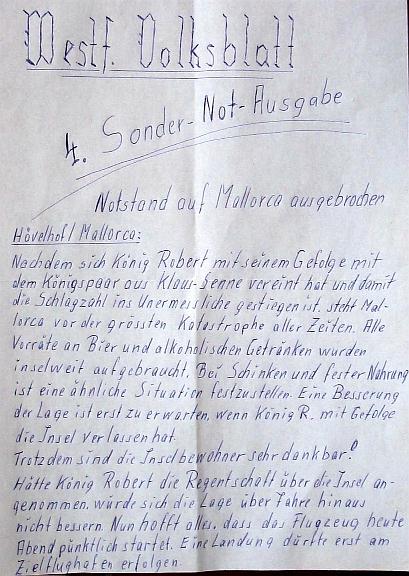 Westf. Volksblatt
4. Sonder-Not-Ausgabe
Notstand auf Mallorca ausgebrochen
Hövelhof/Mallorca:
Nachdem sich König Robert mit seinem Gefolge mit
dem Königspaar aus Klaus-Senne vereint hat und damit
die Schlagzahl ins Unermessliche gestiegen ist, steht Mal-
lorca vor der grössten Katastrophe aller Zeiten. Alle
Vorräte an Bier und alkoholischen Getränken wurden
inselweit aufgebraucht. Bei Schinken und fester Nahrung
ist eine ähnliche Situation festzustellen. Eine Besserung
der Lage ist erst zu erwarten, wenn König R. mit Gefolge
die Insel verlassen hat.
Trotzdem sind die Inselbewohner sehr dankbar!
Hätte König Robert die Regentschaft über die Insel an-
genommen, würde sich die Lage über Jahre hinaus
nicht bessern. Nun hofft alles, dass das Flugzeug heute
Abend pünktlich startet. Eine Landung dürfte erst am
Zielflughafen erfolgen.